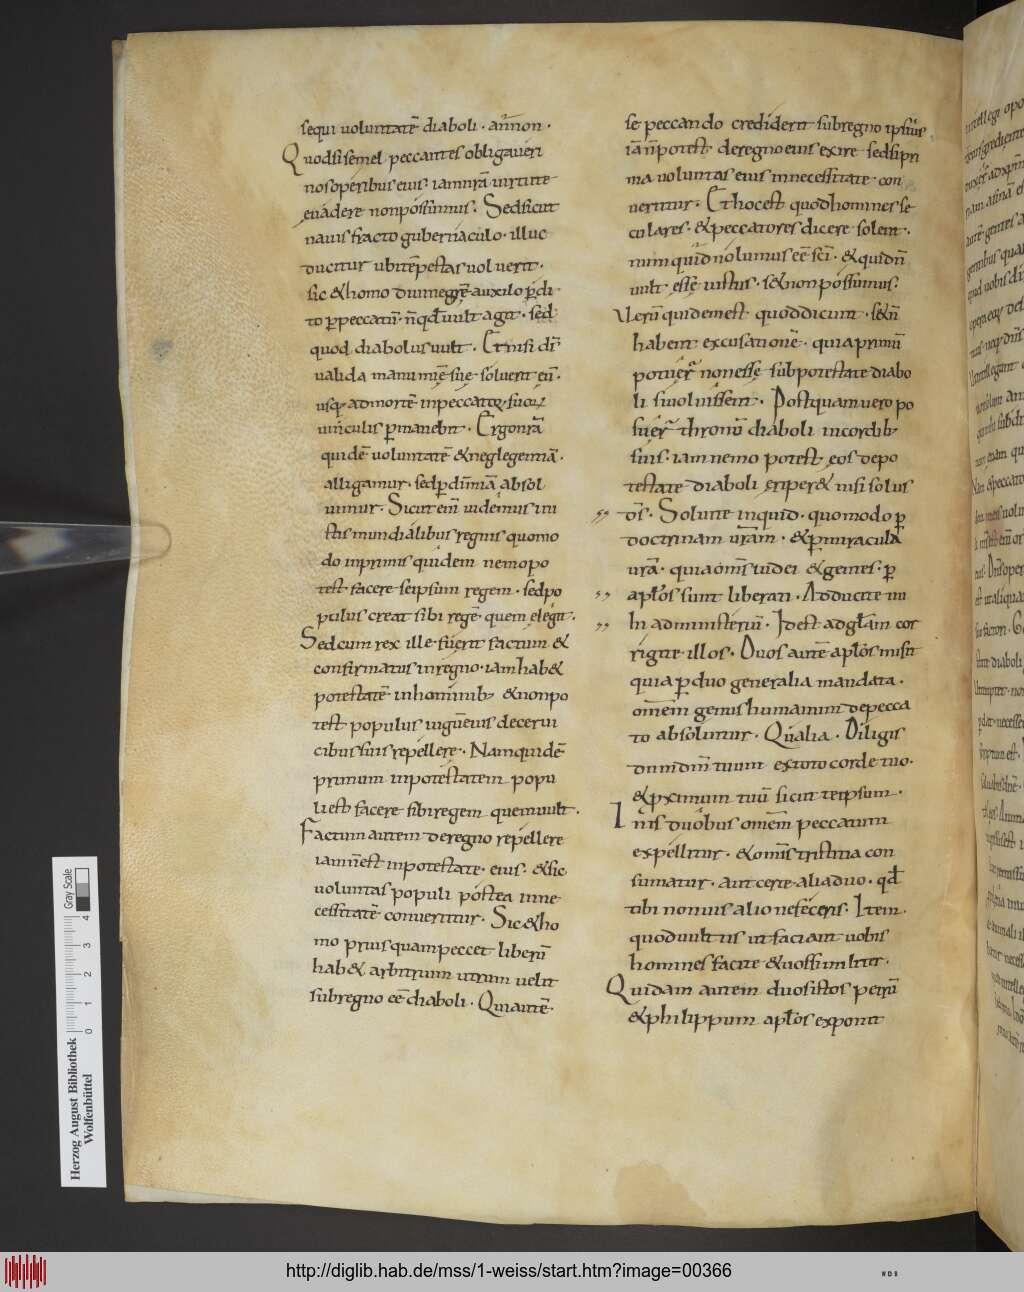 sequi uoluntatē diaboli · an̄non ·
Quodsi semel peccantes obligaueri
nosoperibus eius · iamnr̄a uirtute
euadere nonpossumus · Sedsicut
nauis fracto gubernaculo · illuc
ducitur ubitēpestas uoluerit ·
sic & homo diuinegr̄e auxilo p̄di
to p̄peccatū · n̄qd̄uult agit · sed
quod diabolus uult · Et nisi d̄s
ualida manu mīe sue soluerit eū ·
usq; admortē inpeccatoꝝ suoꝝ
uinculis p̄manebit · Ergonr̄a
quidē uoluntatē & neglegentiā ·
alligamur · sedp̄dīmiā absol
uimur · Sicutenī uidemus in
istis mundialibus regnis quomo
do inprimis quidem nemopo
test facere seipsum regem · sedpo
pulus creat sibi regē · quem elegit ·
Sedcum rex ille fuerit factum &
confirmatus inregno · iam hab&
potestatē inhominib; & nonpo
test populus iugū eius decerui
cibus suis repellere · Namquidē
primum inpotestatem popu
li est facere sibiregem quemuult ·
Factum autem deregno repellere
iamn̄est inpotestate · eius · & sic
uoluntas populi postea inne
cessitatē conuertitur · Sic & ho
mo priusquampeccet liberū
hab& arbitrium utrum uelit
subregno eē diaboli · Quiautē
se peccando crediderit subregno ipsius
iān̄potest deregno eius exire sedsipri
ma uoluntas eius innecessitate con
uertitur · Ethocest quodhomines se
culares · & peccatores dicere solent ·
numquid nolumus eē sc̄i · & quidn̄
uult esse iustus · s& non possumus ·
Uerū quidemest quoddicunt · s& n̄
habent excusationē · quiaprimū
potuer̄ nonesse subpotestate diabo
li siuoluissent · Postquamuero po
suer̄ thronū diaboli incordib;
suis · iam nemo potest eos depo
testate diaboli eriper& nisi solus
d̄s · Soluite inquid · quomodo p̄
doctrinam ur̄am · & p̄miracula
ur̄a · quia om̄s iudei & gentes · p̄
apl̄os sunt liberati · Adducite mi
hi administeriū · Idest adgl̄am cor
rigite illos · Duos autē apl̄os misit
quia p̄duo generalia mandata ·
om̄em genus humanum depecca
to absoluitur · Qualia · Diligis
dnm dm̄ tuum extoto corde tuo ·
& pximum tuū sicut teipsum ·
In his duobus om̄em peccatum
expellitur · & om̄is tristitia con
sumatur · aut certe aliaduo · qd̄
tibi nonuis alio nefeceris · Item ·
quoduultis ut faciant uobis
homines facite & uossimlitr̄ ·
Quidam autem duos istos petrū
& philippum apl̄os exponit
Herzog August Bibliothek
Wolfenbüttel
0 1 2 3 4
Gray Scale
http://diglib.hab.de/mss/1-weiss/start.htm?image=00366